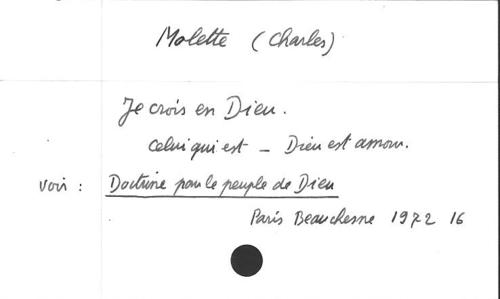 Molette (Charles)
Je crois en Dieu.
Celui qui est - Dieu est amour.
voir : Doctrine pour le peuple de Dieu
Paris Beauchesne 1972 16